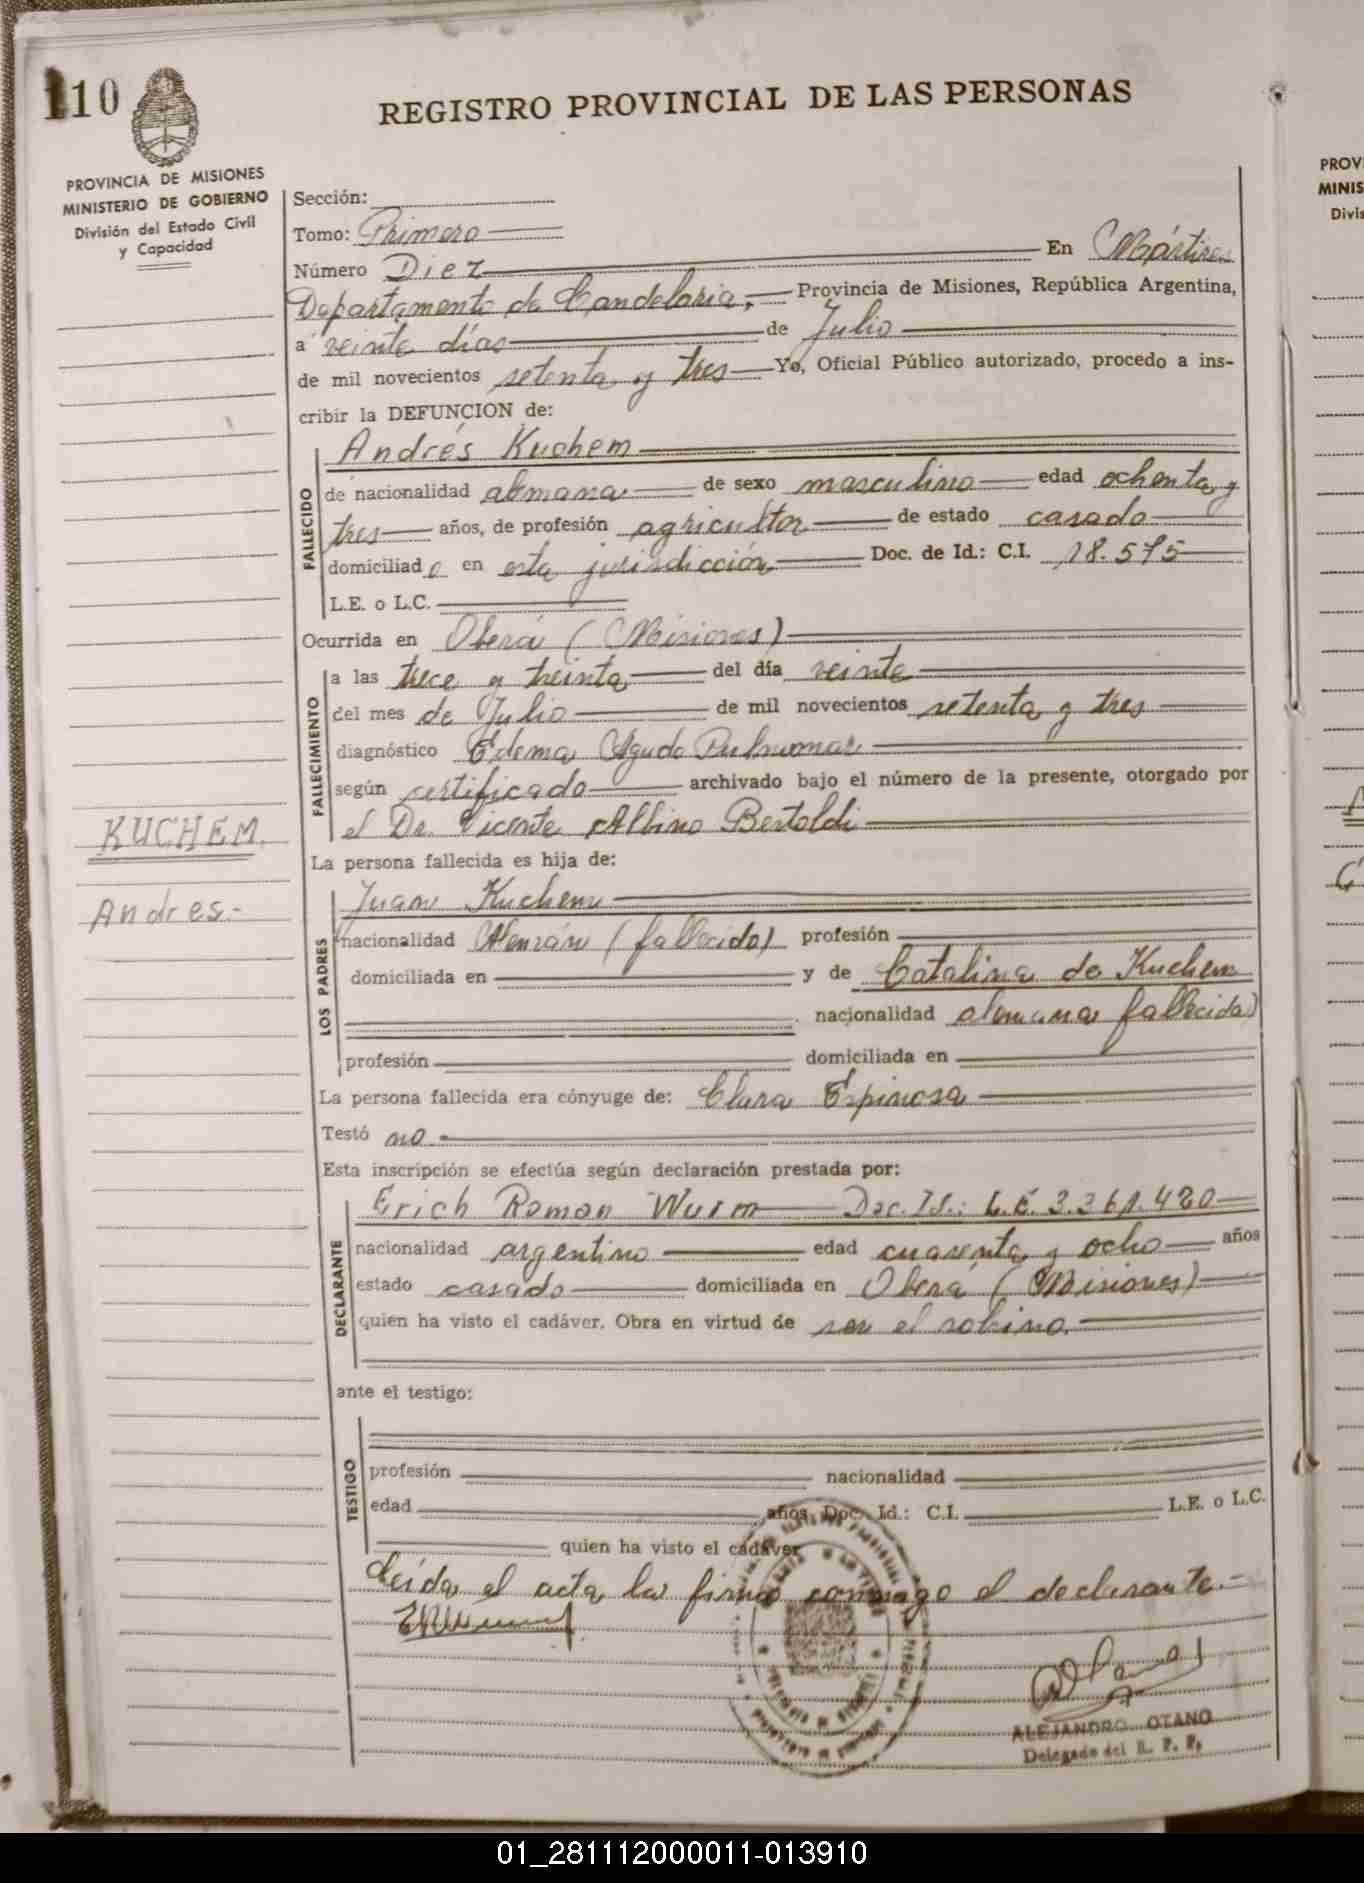 110
REGISTRO PROVINCIAL DE LAS PERSONAS
PROVINCIA DE MISIONES
MINISTERIO DE GOBIERNO
División del Estado Civil
y Capacidad
Sección:
Tomo: Primero
Número Diez En Mártires
Departamento de Candelaria, Provincia de Misiones, República Argentina,
a veinte días de Julio
de mil novecientos setenta y tres Yo, Oficial Público autorizado, procedo a ins-
cribir la DEFUNCION de:
FALLECIDO
Andrés Kuchem
de nacionalidad alemana de sexo masculino edad ochenta y
tres años, de profesión agricultor de estado casado
domiciliado en esta jurisdicción Doc. de Id.: C.I. 18.575
L.E. o L.C.
Ocurrida en Oberá (Misiones)
FALLECIMIENTO
a las trece y treinta del día veinte
del mes de Julio de mil novecientos setenta y tres
diagnóstico Edema Agudo Pulmonar
según certificado archivado bajo el número de la presente, otorgado por
el Dr. Vicente Albino Bertoldi
KUCHEM.
Andres.-
La persona fallecida es hija de:
LOS PADRES
Juan Kuchem
nacionalidad Alemán (fallecido) profesión
domiciliada en y de Catalina de Kuchem
nacionalidad alemana fallecida)
profesión domiciliada en
La persona fallecida era cónyuge de: Clara Espinosa
Testó no
Esta inscripción se efectúa según declaración prestada por:
DECLARANTE
Erich Roman Wurm Doc. Id.: L.E. 3.361.420
nacionalidad argentino edad cuarenta y ocho años
estado casado domiciliada en Oberá (Misiones)
quien ha visto el cadáver. Obra en virtud de ser el sobrino.
ante el testigo:
TESTIGO
profesión nacionalidad
edad años Doc. Id.: C.I. L.E. o L.C.
quien ha visto el cadáver
Leída el acta la firma conmigo el declarante.-
ALEJANDRO OTANO
Delegado del R. P. P.
PROV
MINIS
Divis
01_281112000011-013910